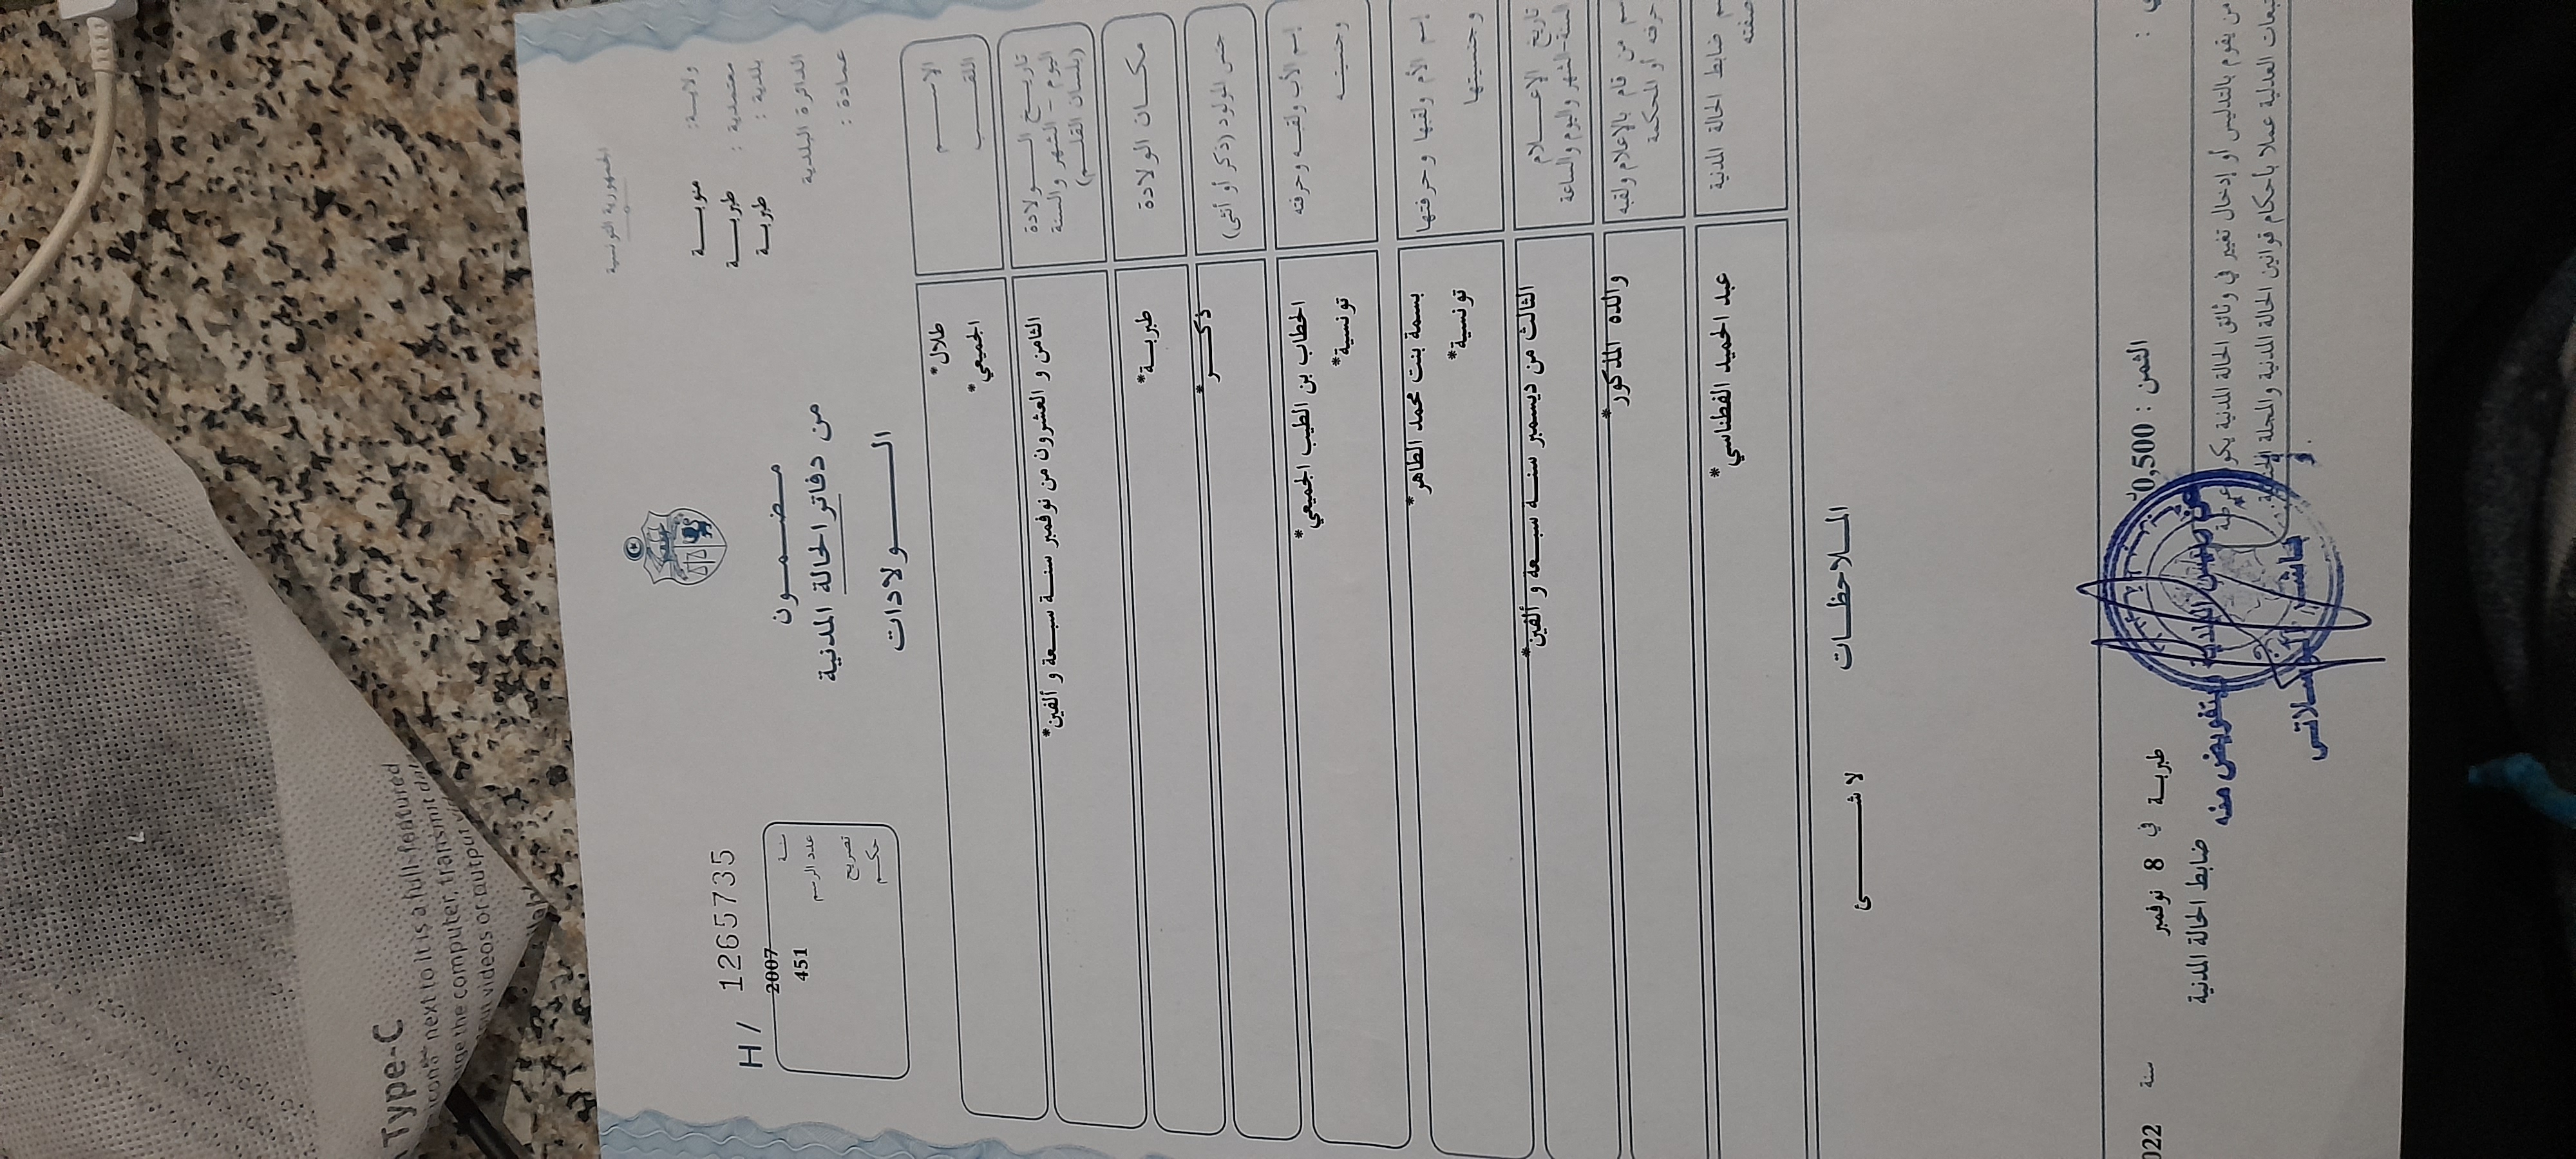 الجمهورية التونسية
ولايـة: منوبـــة
معتمدية : طبربـــة
بلدية : طبربـة
الدائرة البلدية
عمادة :
H/ 1265735
سنـة 2007
عدد الرسم 451
تصريح
حكـم
مـضـــمـــون
من دفاتر الحالة المدنية
الـــــولادات
الإســـم طلال*
اللقـــب الجميعي*
تاريـــخ الـــولادة
اليوم - الشهر والسنة
(بلسان القلــم)
الثامن و العشرون من نوفمبر سنــة سبـعة و ألفين*
مكـــان الولادة طبربـة*
جنس المولود (ذكر أو أنثى) ذكـــر*
إسم الأب ولقبـه وحرفته الحطاب بن الطيب الجميعي*
وجنسيتـه تونسية*
إسم الأم ولقبها وحرفتها بسمة بنت محمد الطاهر*
وجنسيتها تونسية*
تاريخ الإعـــلام
السنة-الشهر واليوم والساعة
الثالث من ديسمبر سنــة سبـعة و ألفين*
إسم من قام بالإعلام ولقبه
حرفته أو المحكمة
والده المذكور*
ضابط الحالة المدنية
صفته
عبد الحميد الفطناسي*
المــلاحظــات
لا شـــــئ
طبربـة في 8 نوفمبر سنة 022
الثمن : 0,500
ضابط الحالة المدنية
من يقوم بالتدليس أو إدخال تغيير في وثائق الحالة المدنية يكو عرضة
العدلية عملا بأحكام قوانين الحالة المدنية والمجلة
عن رئيس البلدية وبتفويض منه
Type-C
next to it is a full-featured
the computer, transmit
videos or output